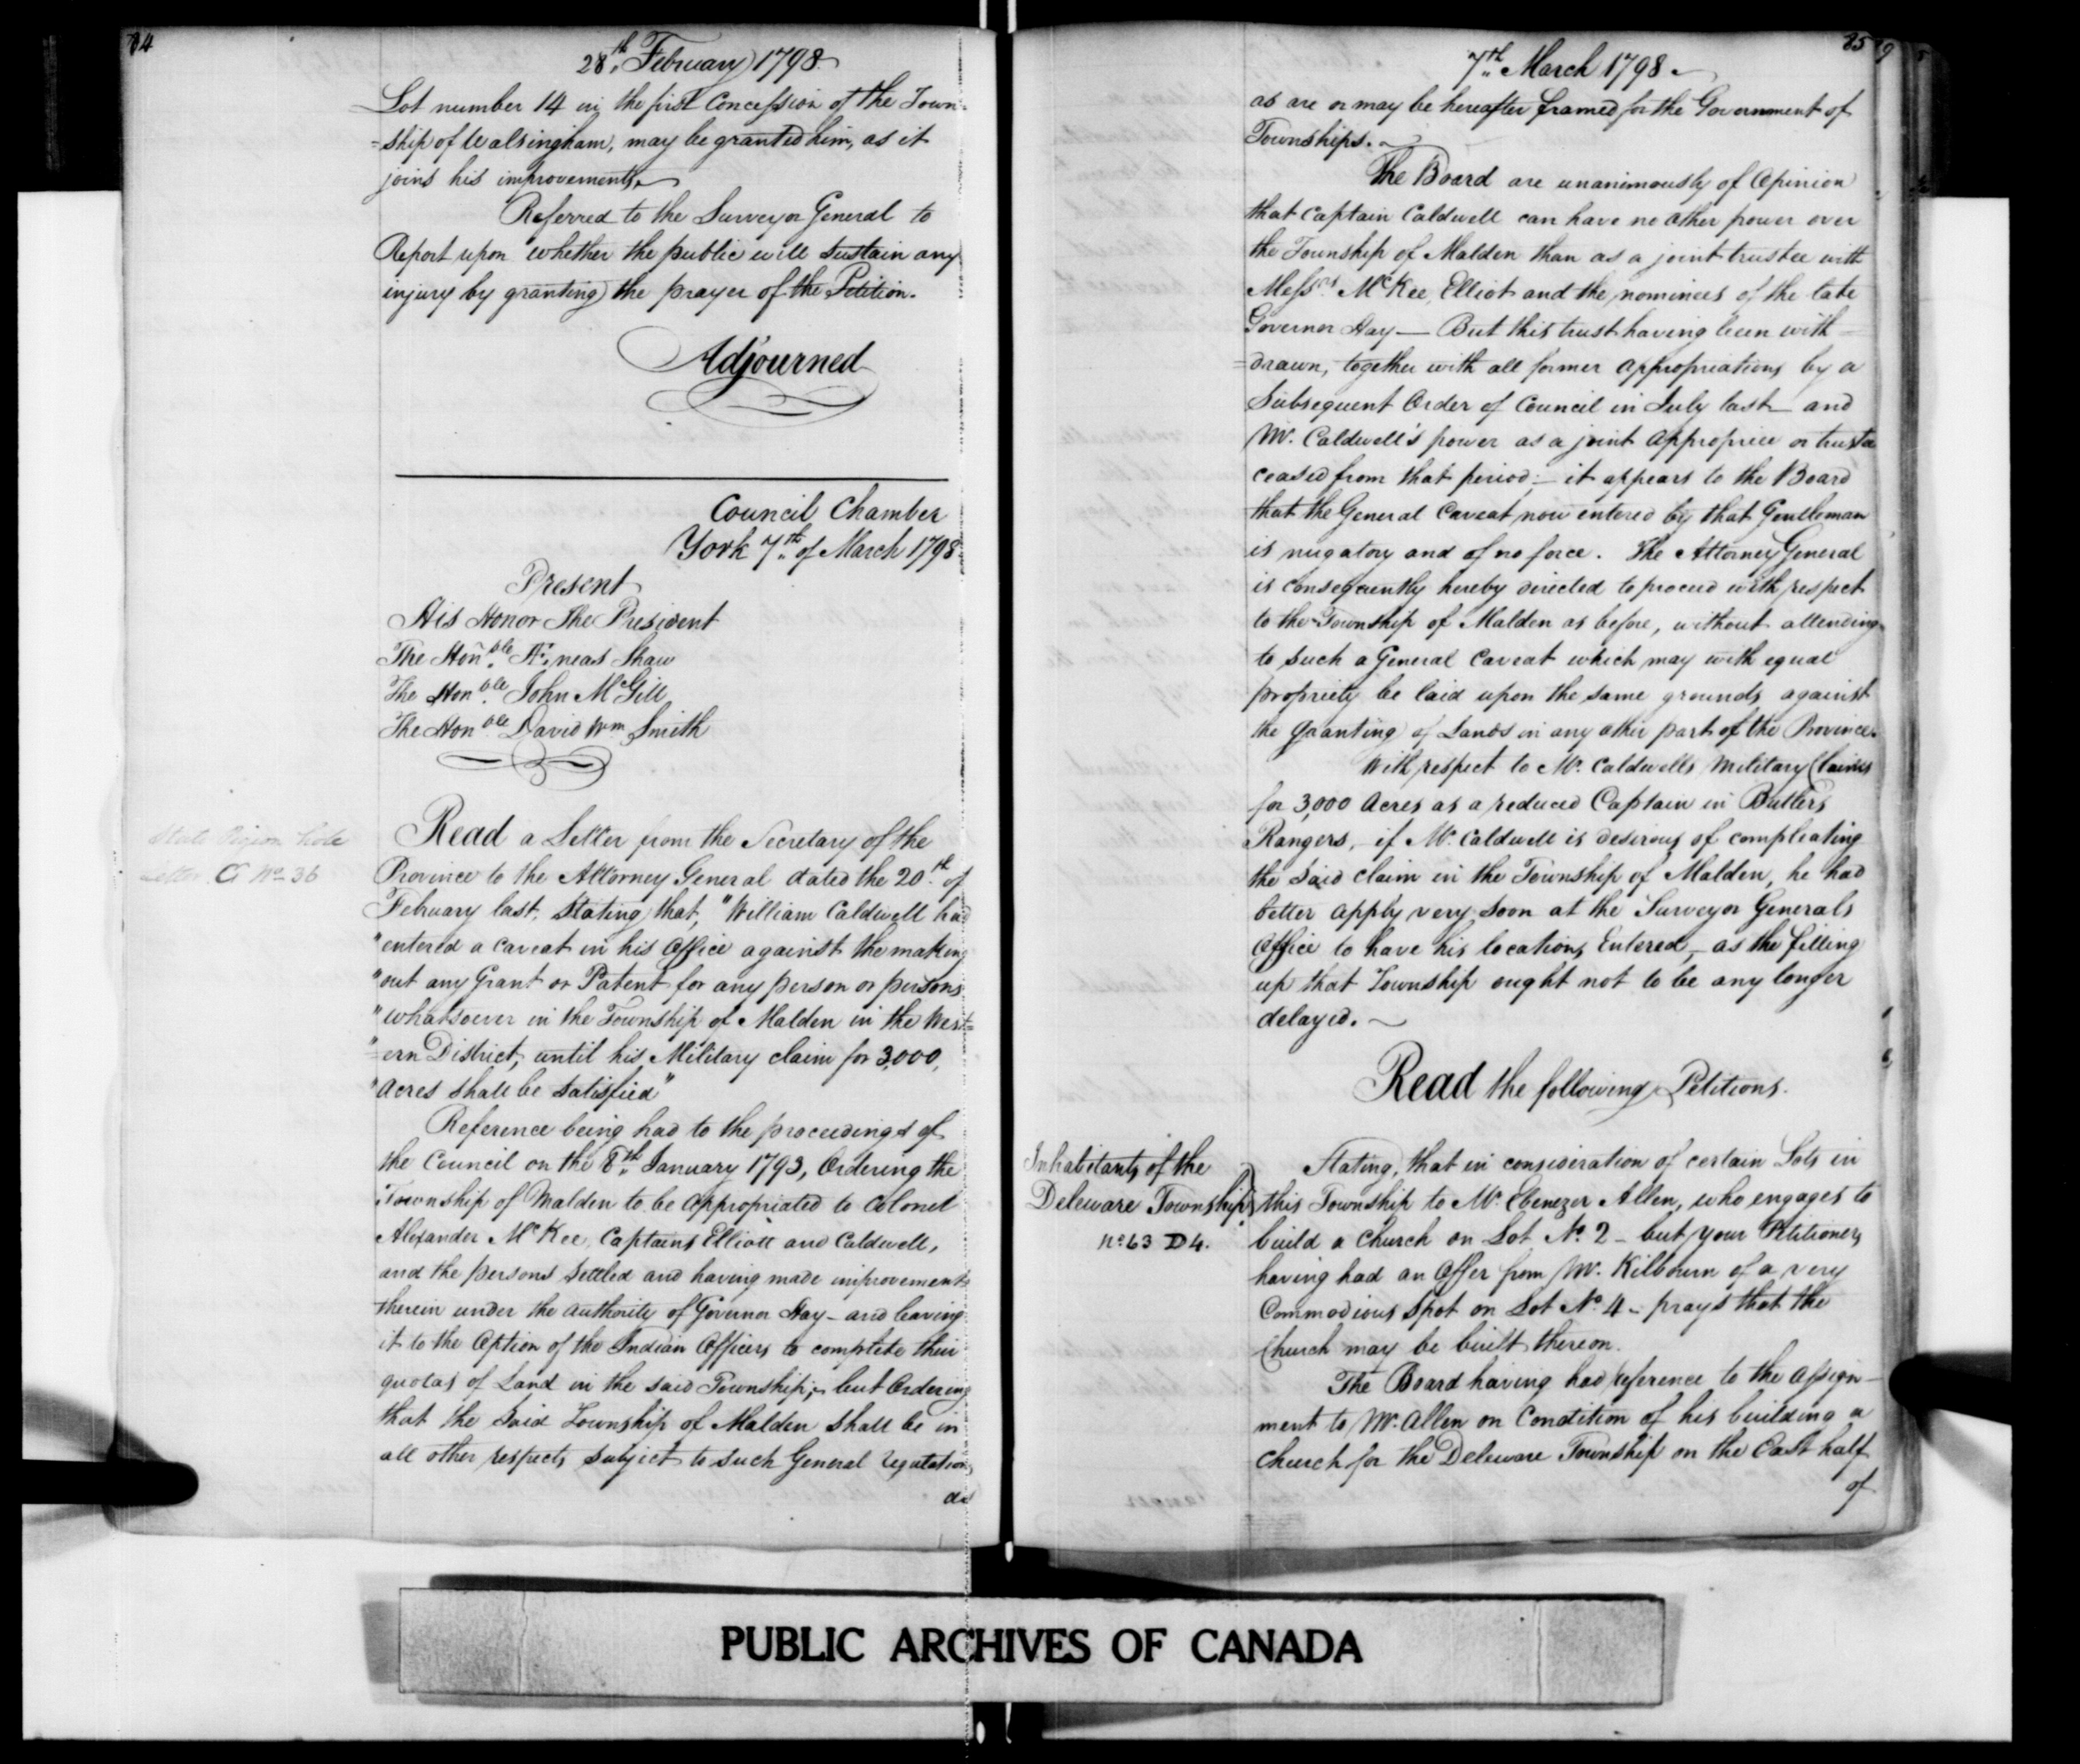 84
28th February 1798
Lot number 14 in the first Concession of the Town=
=ship of Walsingham, may be granted him, as it
joins his improvements.
Referred to the Surveyor General to
Report upon whether the public will sustain any
injury by granting the prayer of the Petition.
Adjourned
Council Chamber
York 7th of March 1798
Present
His Honor The President
The Honble Æneas Shaw
The Honble John McGill
The Honble David Wm Smith
State Pigeon hole
Letter G No 36
Read a Letter from the Secretary of the
Province to the Attorney General dated the 20th of
February last, Stating that, "William Caldwell had
"entered a Caveat in his Office against the making
"out any Grant or Patent for any person or persons
"whatsoever in the Township of Malden in the West=
"=ern District, until his Military claim for 3,000,
"Acres shall be satisfied"
Reference being had to the proceedings of
the Council on the 8th January 1793, Ordering the
Township of Malden to be appropriated to Colonel
Alexander McKee, Captains Elliott and Caldwell,
and the persons settled and having made improvements
therein under the authority of Governor Hay - and leaving
it to the Option of the Indian Officers to complete their
quotas of Land in the said Township; - but Ordering
that the said Township of Malden shall be in
all other respects subject to such General regulations
as
85
7th March 1798
as are or may be hereafter framed for the Government of
Townships.
The Board are unanimously of Opinion
that Captain Caldwell can have no other power over
the Township of Malden than as a joint trustee with
Messrs McKee, Elliot and the nominees of the late
Governor Hay — But this trust having been with=
=drawn, together with all former appropriations by a
Subsequent Order of Council in July last - and
Mr. Caldwell's power as a joint appropriee or trustee
ceased from that period; - it appears to the Board
that the General Caveat now entered by that Gentleman
is nugatory and of no force. The Attorney General
is consequently hereby directed to proceed with respect
to the Township of Malden as before, without attending
to such a General Caveat which may with equal
propriety be laid upon the same grounds against
the granting of Lands in any other part of the Province.
With respect to Mr. Caldwells Military Claims
for 3,000 Acres as a reduced Captain in Butler's
Rangers, - if Mr. Caldwell is desirous of compleating
the said claim in the Township of Malden, he had
better apply very soon at the Surveyor Generals
Office to have his locations Entered, - as the filling
up that Township ought not to be any longer
delayed.
Read the following Petitions.
Inhabitants of the
Deleware Township
No 63 D 4.
Stating, that in consideration of certain Lots in
this Township to Mr. Ebenezer Allen, who engages to
build a Church on Lot No. 2 - but your Petitioners
having had an Offer from Mr. Kilbourn of a very
Commodious spot on Lot No. 4 - prays that the
Church may be built thereon.
The Board having had reference to the Assign-
ment to Mr. Allen on Condition of his building a
Church for the Deleware Township on the East half
of
PUBLIC ARCHIVES OF CANADA